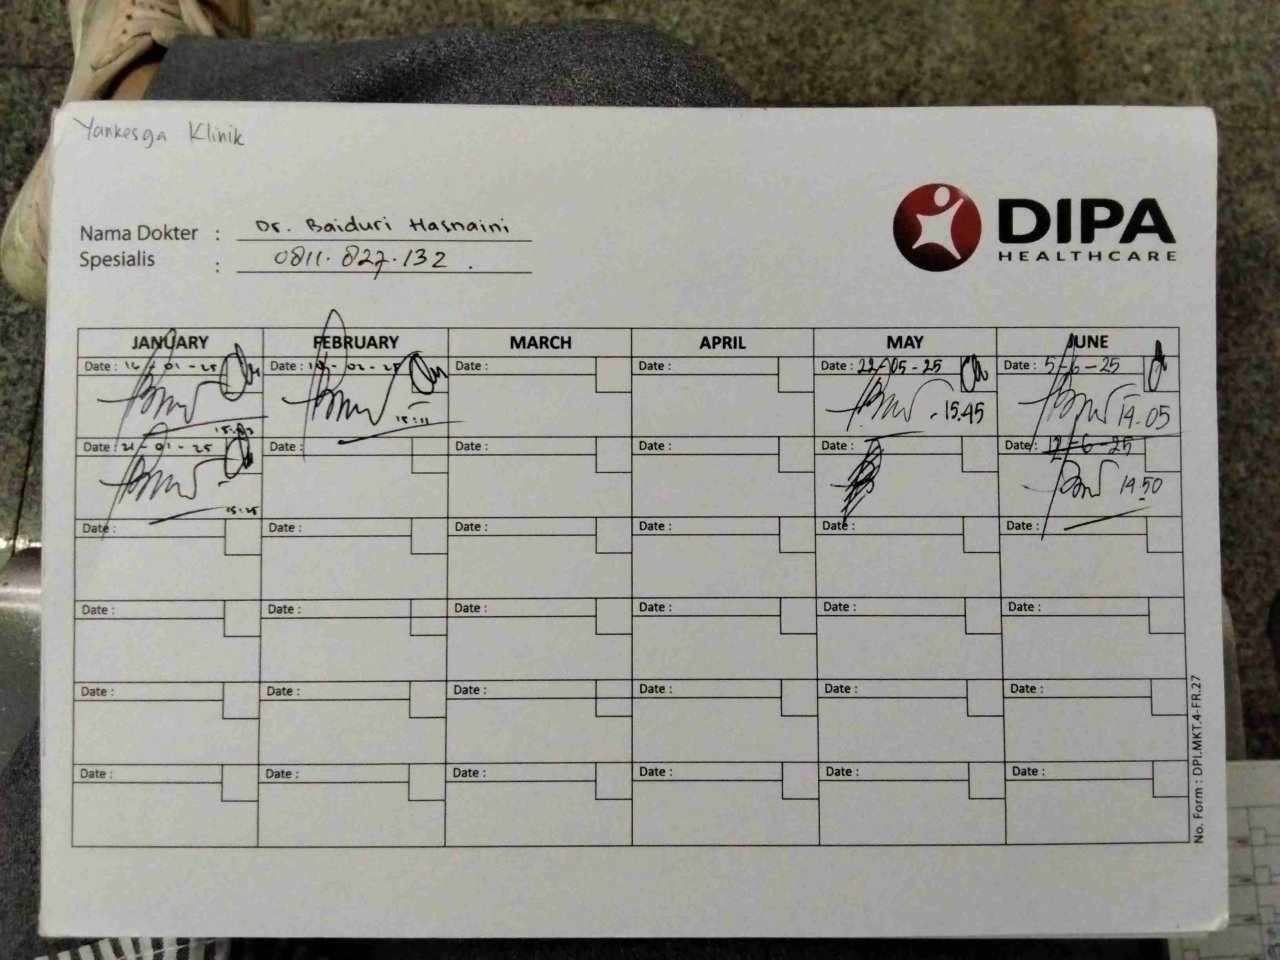 Yankesga Klinik
Nama Dokter : Dr. Baiduri Hasnaini
Spesialis : 0811.827.132.
DIPA
HEALTHCARE
JANUARY FEBRUARY MARCH APRIL MAY JUNE
Date : 16-01-25 Date : 10-02-25 Date : Date : Date : 22-05-25 Date : 5-6-25
15:11 15.45 14.05
Date : 21-01-25 Date : Date : Date : Date : Date : 12-6-25
15:25 14.50
Date : Date : Date : Date : Date : Date :
Date : Date : Date : Date : Date : Date :
Date : Date : Date : Date : Date : Date :
Date : Date : Date : Date : Date : Date :
No. Form : DPI.MKT.4-FR.27